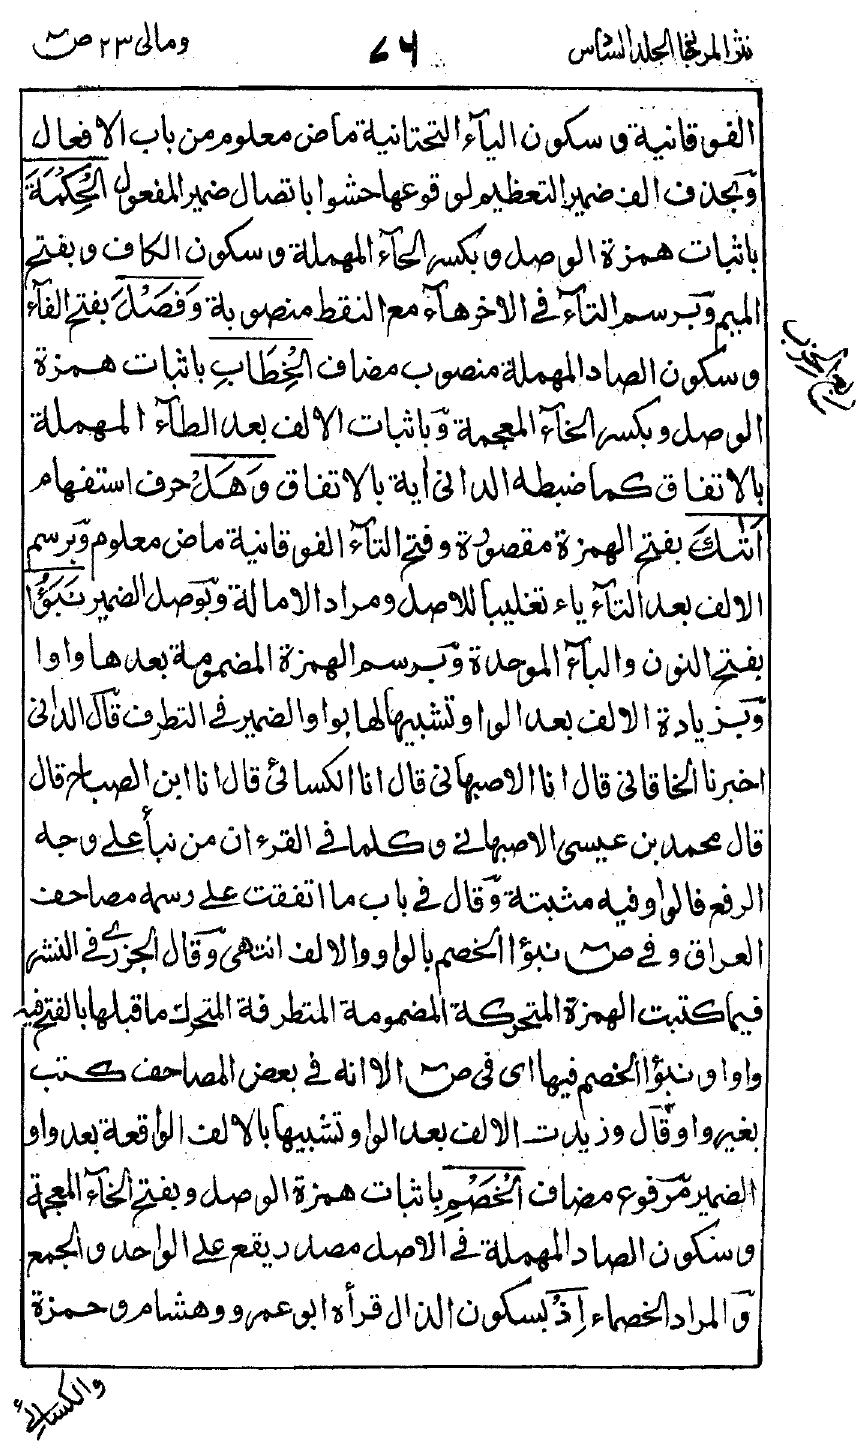 نثر المرجان الجلد السادس
٧٦
ومالى ٢٣ ص
الفوقانية وسكون اليآء التحتانية ماض معلوم من باب الافعال
وبحذف الف ضمير التعظيم لوقوعها حشوا باتصال ضمير المفعول الْحِكْمَةَ
باثبات همزة الوصل وبكسر الحآء المهملة وسكون الكاف وبفتح
الميم وبرسم التآء فى الاخر هآء مع النقط منصوبة وَفَصْلَ بفتح الفآء
وسكون الصاد المهملة منصوب مضاف الْخِطَابِ باثبات همزة
الوصل وبكسر الخآء المعجمة وباثبات الالف بعد الطآء المهملة
بالاتفاق كما ضبطه الدانى اية بالاتفاق وَهَلْ حرف استفهام
اَتٰىكَ بفتح الهمزة مقصورة وفتح التآء الفوقانية ماض معلوم وبرسم
الالف بعد التآء ياء تغليبا للاصل ومراد الامالة وبوصل الضمير نَبَؤُا
بفتح النون والبآء الموحدة وبرسم الهمزة المضمومة بعدها واوا
وبزيادة الالف بعد الواو تشبيها لها بواو الضمير فى التطرف قال الدانى
اخبرنا الخاقانى قال انا الاصبهانى قال انا الكسائى قال انا ابن الصباح قال
قال محمد بن عيسى الاصبهانى وكلما فى القرءان من نبأ على وجه
الرفع فالواو فيه مثبتة وقال فى باب ما اتفقت على رسمه مصاحف
العراق وفى ص نبؤا الخصم بالواو والالف انتهى وقال الجزرى فى النشر
فيما كتبت الهمزة المتحركة المضمومة المتطرفة المتحرك ما قبلها بالفتح فيه
واوا ونبؤا الخصم فيها اى فى ص الا انه فى بعض المصاحف كتب
بغير واو وقال وزيدت الالف بعد الواو تشبيها بالالف الواقعة بعد واو
الضمير مرفوع مضاف الْخَصْمِ باثبات همزة الوصل وبفتح الخآء المعجمة
وسكون الصاد المهملة فى الاصل مصدر يقع على الواحد والجمع
والمراد الخصماء اِذْ بسكون الذال قرأه ابو عمرو وهشام وحمزة
والكسائى
ربع الحزب